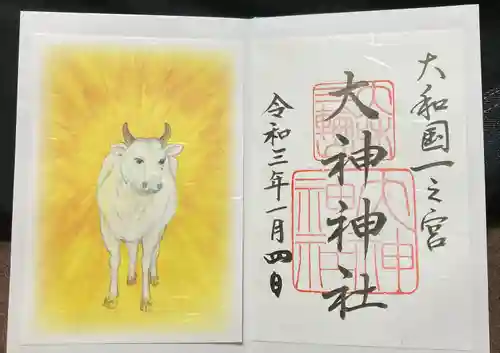 大和国一之宮
大神神社
令和三年一月四日
三輪
大神
神社